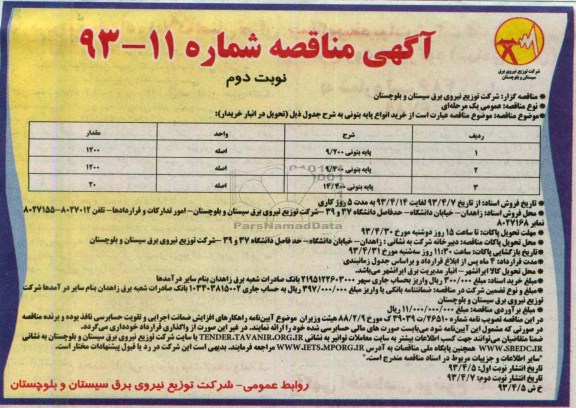 شرکت توزیع نیروی برق
سیستان و بلوچستان
آگهی مناقصه شماره ۱۱-۹۳
نوبت دوم
مناقصه گزار: شرکت توزیع نیروی برق سیستان و بلوچستان
نوع مناقصه: عمومی یک مرحله‌ای
موضوع مناقصه: موضوع مناقصه عبارت است از خرید انواع پایه بتونی به شرح جدول ذیل (تحویل در انبار خریدار):
ردیف شرح واحد مقدار
۱ پایه بتونی ۹/۲۰۰ اصله ۱۲۰۰
۲ پایه بتونی ۹/۴۰۰ اصله ۱۲۰۰
۳ پایه بتونی ۱۲/۴۰۰ اصله ۲۰
ParsNamadData
تاریخ فروش اسناد: از تاریخ ۹۳/۴/۷ لغایت ۹۳/۴/۱۴ به مدت ۵ روز کاری
محل فروش اسناد: زاهدان- خیابان دانشگاه- حدفاصل دانشگاه ۳۷ و ۳۹ -شرکت توزیع نیروی برق سیستان و بلوچستان- امور تدارکات و قراردادها- تلفن ۸۰۲۷۰۱۲-۸۰۲۷۱۵۵
نمابر ۸۰۲۷۱۶۸
مهلت تحویل پاکات: تا ساعت ۱۵ روز دوشنبه مورخ ۹۳/۴/۳۰
محل تحویل پاکات مناقصه: دبیرخانه شرکت به نشانی: زاهدان- خیابان دانشگاه- حد فاصل دانشگاه ۳۷ و ۳۹ -شرکت توزیع نیروی برق سیستان و بلوچستان
تاریخ بازگشایی پاکات: ساعت ۱۱:۳۰ روز سه‌شنبه مورخ ۹۳/۴/۳۱
مدت قرارداد: ۴ ماه پس از ابلاغ قرارداد و براساس جدول زمانبندی
محل تحویل کالا ایرانشهر- انبار مدیریت برق ایرانشهر می‌باشد.
مبلغ خرید اسناد: مبلغ ۳۰۰/۰۰۰ ریال واریز بحساب جاری سپهر ۲۱۹۵۱۲۲۶۰۳۰۰۰ بانک صادرات شعبه برق زاهدان بنام سایر درآمدها
مبلغ و نوع تضمین شرکت در مناقصه: ضمانتنامه بانکی یا واریز مبلغ ۳۹۷/۰۰۰/۰۰۰ ریال به حساب جاری ۱۰۳۴۰۳۸۱۵۰۰۲ بانک صادرات شعبه برق زاهدان بنام سایر درآمدها شرکت
توزیع نیروی برق سیستان و بلوچستان
مبلغ برآوردی مناقصه: مبلغ ۱۱/۰۰۰/۰۰۰/۰۰۰ ریال
در این مناقصه تصویب نامه شماره ۲۶۵۱۰/ت ۳۹۰۳۹ ک مورخ ۸۸/۲/۹ هیئت وزیران موضوع آیین‌نامه راهکارهای افزایش ضمانت اجرایی و تقویت حسابرسی نافذ بوده و برنده مناقصه
در صورتی که مشمول این آیین‌نامه شود می‌بایست صورت های مالی حسابرسی شده خود را ارائه نمایند، در غیر این صورت از واگذاری قرارداد خودداری می‌گردد.
ضمنا متقاضیان می‌توانند جهت کسب اطلاعات بیشتر به سایت معاملات توانیر به نشانی TENDER.TAVANIR.ORG.IR یا سایت شرکت توزیع نیروی برق سیستان و بلوچستان به نشانی
WWW.SBEDC.IR همچنین پایگاه ملی مناقصات به آدرس WWW.IETS.MPORG.IR مراجعه فرمایند. بدیهی است این شرکت در رد یا قبول پیشنهادات مختار است.
"سایر اطلاعات و جزییات مربوط در اسناد مناقصه مندرج است."
تاریخ انتشار نوبت اول: ۹۳/۴/۵
تاریخ انتشار نوبت دوم: ۹۳/۴/۷
خ ش ۹۳/۴/۵
روابط عمومی- شرکت توزیع نیروی برق سیستان و بلوچستان